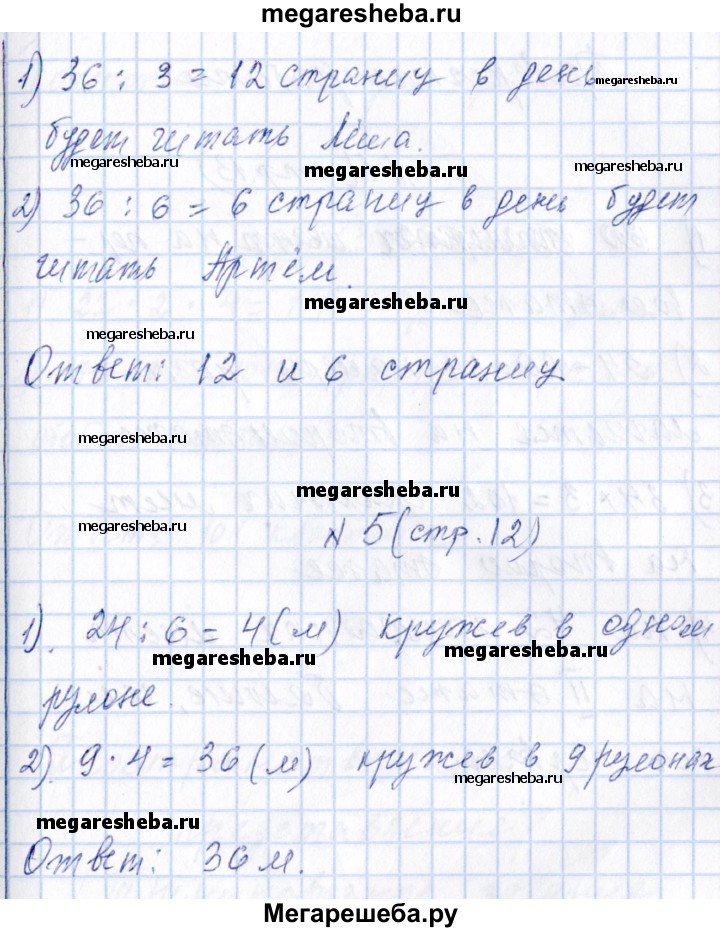 megaresheba.ru
1) 36 : 3 = 12 страниц в день
megaresheba.ru
будет читать Лёша.
megaresheba.ru
megaresheba.ru
megaresheba.ru
2) 36 : 6 = 6 страниц в день будет
читать Артём.
megaresheba.ru
megaresheba.ru
Ответ: 12 и 6 страниц
megaresheba.ru
megaresheba.ru
megaresheba.ru
№ 5 (стр. 12)
1). 24 : 6 = 4 (м) кружев в одном
megaresheba.ru
megaresheba.ru
рулоне.
2). 9 · 4 = 36 (м) кружев в 9 рулонах
megaresheba.ru
megaresheba.ru
Ответ: 36 м.
Мегарешеба.ру